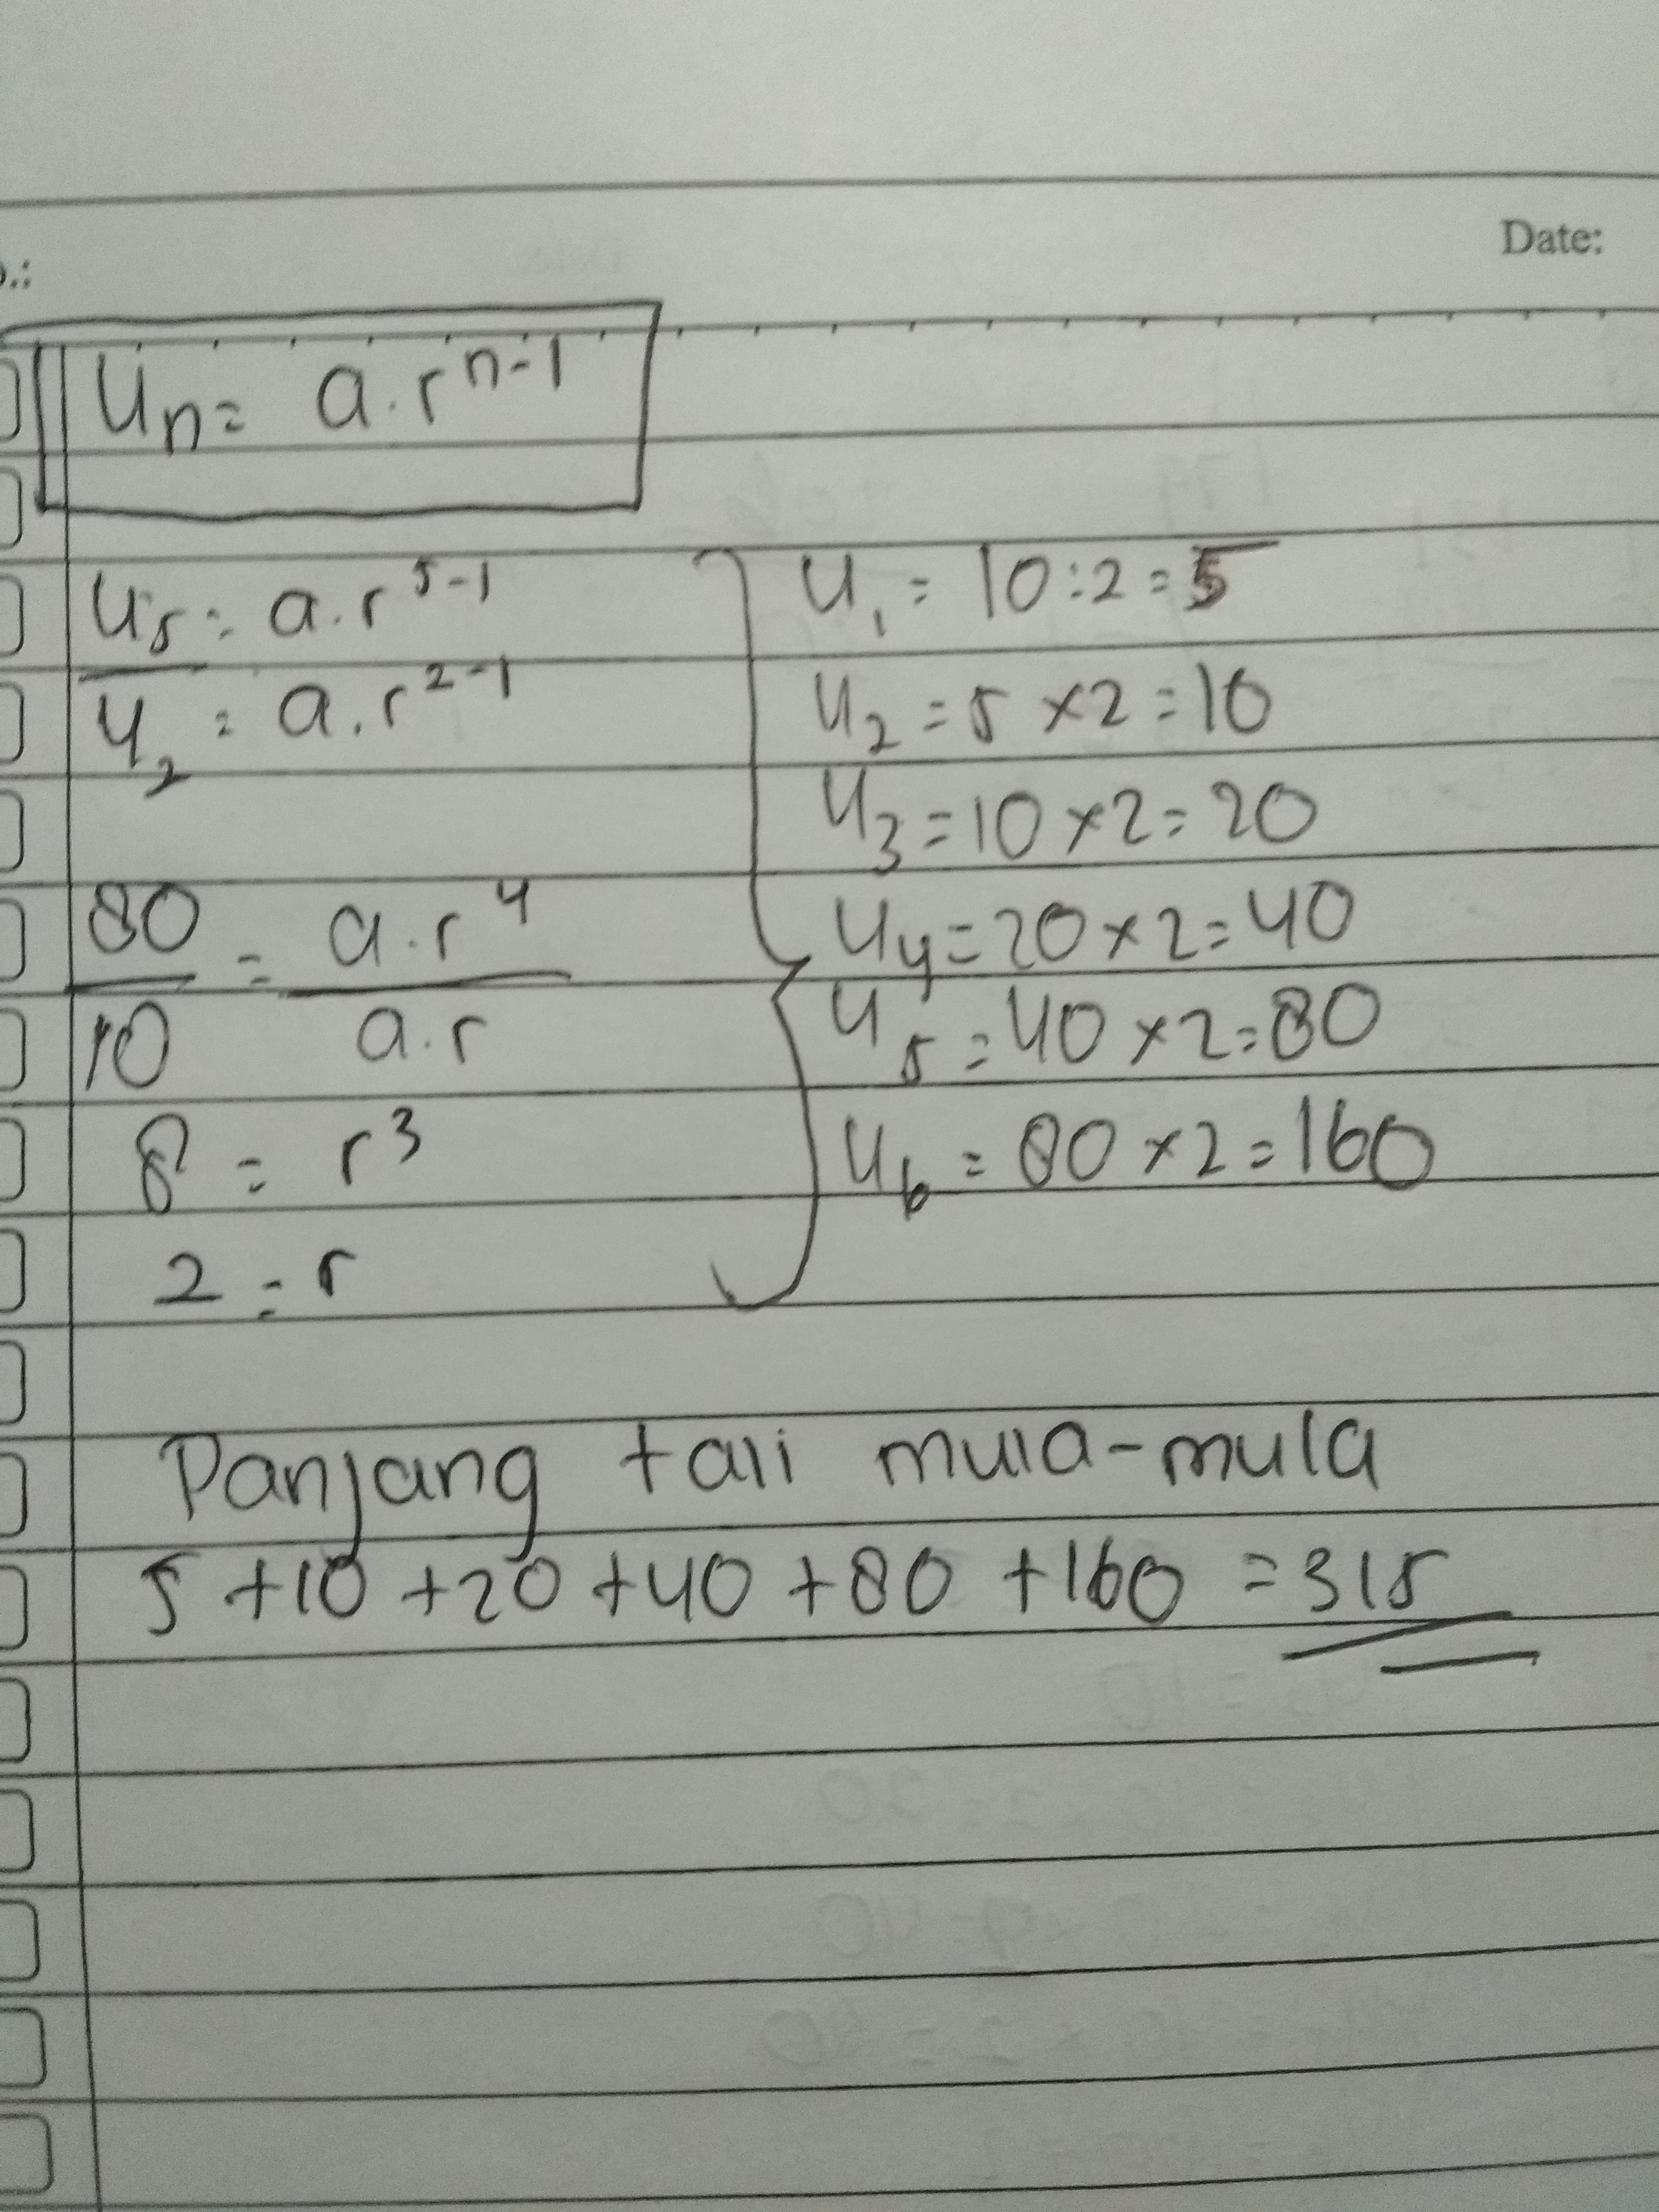 Date:
Un = a.r^n-1
U5 = a.r^5-1
U2 = a.r^2-1
80 = a.r^4
10 a.r
8 = r^3
2 = r
U1 = 10:2=5
U2 = 5 ×2=10
U3 =10 ×2= 20
U4=20×2=40
U5 =40 ×2=80
U6 = 80 ×2=160
Panjang tali mula-mula
5 +10 +20 +40 +80 +160 =315